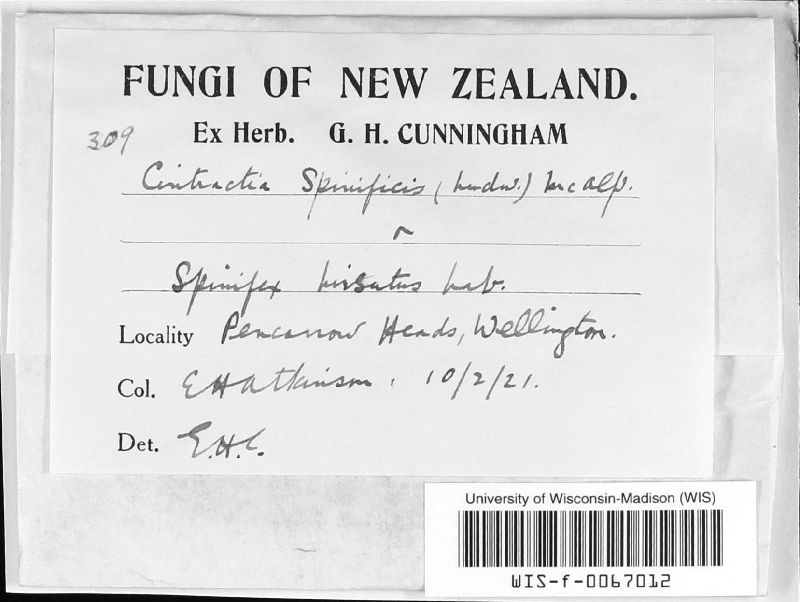 FUNGI OF NEW ZEALAND.
309 Ex Herb. G. H. CUNNINGHAM
Cintractia Spinificis (Ludw.) McAlp.
Spinifex hirsutus Lab.
Locality Pencarrow Heads, Wellington.
Col. E H Atkinson. 10/2/21.
Det. G.H.C.
University of Wisconsin-Madison (WIS)
WIS-f-0067012